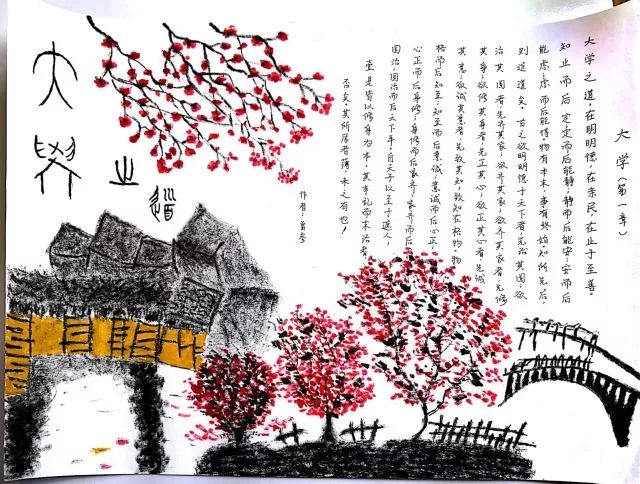 大学(第一章)
大学之道,在明明德,在亲民,在止于至善。
知止而后定定而后能静;静而后能安;安而后
能虑;虑而后能得。物有本末,事有终始。知所先后,
则近道矣。古之欲明明德于天下者,先治其国;欲
治其国者,先齐其家;欲齐其家者,先修
其身;欲修其身者,先正其心;欲正其心者,先诚
其意;欲诚其意者,先致其知;致知在格物。物
格而后知至;知至而后意诚;意诚而后心正;
心正而后身修;身修而后家齐;家齐而后
国治;国治而后天下平。自天子以至于庶人,
壹是皆以修身为本。其本乱而末治者,
否矣。其所厚者薄,未之有也!
作者:曾参
大學之道